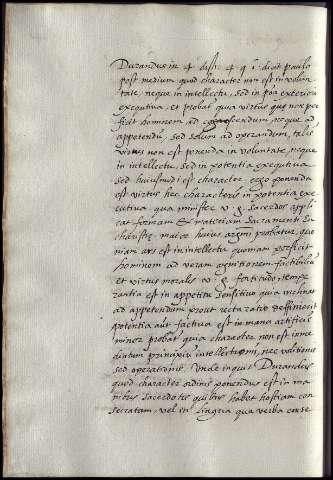 Durandus in 4 dist. 4 q. 1. dicit paulo
post medium quod character non est in volun
tate, neque in intellectu, sed in poa exteriori
executiva, et probat quia virtus que non per
ficit hominem ad cognoscendum neque ad
appetendum sed solum ad operandum, talis
virtus non est ponenda in voluntate, neque
in intellectu, sed in potentia exequutiva
sed huiusmodi est character ergo ponenda
est virtus hec characteris in potentia exe
cutiva qua minister v. g. sacerdos appli
cat formam et materiam Sacramenti Eu
charistie, maior huius probatur, quo
niam ars est in intellectu quoniam perficit
hominem ad veram factibilium
et virtus moralis v. g. fortitudo, tempe
rantia est in appetitu sensitivo quia inclinat
ad appetendum prout recta ratio
potentia aut factiva est in manu artificis
minor probat quia character non est imme
diatum principium intellectioni, nec volitionis
sed operationis. Unde inquit Durandus
quod character ordinis ponendus est in ma
nibus sacerdotis quibus habet hostiam con
secratam, vel in lingua qua verba conse